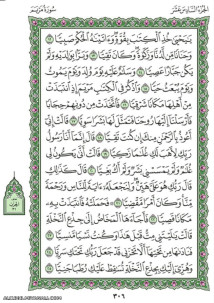 الجزء السادس عشر
سورة مريم
يَـٰيَحْيَىٰ خُذِ ٱلْكِتَـٰبَ بِقُوَّةٍ وَءَاتَيْنَـٰهُ ٱلْحُكْمَ صَبِيًّا ١٢
وَحَنَانًا مِّن لَّدُنَّا وَزَكَوٰةً وَكَانَ تَقِيًّا ١٣ وَبَرًّۢا بِوَٰلِدَيْهِ وَلَمْ
يَكُن جَبَّارًا عَصِيًّا ١٤ وَسَلَـٰمٌ عَلَيْهِ يَوْمَ وُلِدَ وَيَوْمَ يَمُوتُ
وَيَوْمَ يُبْعَثُ حَيًّا ١٥ وَٱذْكُرْ فِى ٱلْكِتَـٰبِ مَرْيَمَ إِذِ ٱنتَبَذَتْ
مِنْ أَهْلِهَا مَكَانًا شَرْقِيًّا ١٦ فَٱتَّخَذَتْ مِن دُونِهِمْ حِجَابًا
فَأَرْسَلْنَآ إِلَيْهَا رُوحَنَا فَتَمَثَّلَ لَهَا بَشَرًا سَوِيًّا ١٧ قَالَتْ إِنِّىٓ
أَعُوذُ بِٱلرَّحْمَـٰنِ مِنكَ إِن كُنتَ تَقِيًّا ١٨ قَالَ إِنَّمَآ أَنَا۠ رَسُولُ
رَبِّكِ لِأَهَبَ لَكِ غُلَـٰمًا زَكِيًّا ١٩ قَالَتْ أَنَّىٰ يَكُونُ لِى
غُلَـٰمٌ وَلَمْ يَمْسَسْنِى بَشَرٌ وَلَمْ أَكُ بَغِيًّا ٢٠ قَالَ كَذَٰلِكِ
قَالَ رَبُّكِ هُوَ عَلَىَّ هَيِّنٌ وَلِنَجْعَلَهُۥٓ ءَايَةً لِّلنَّاسِ وَرَحْمَةً
مِّنَّا وَكَانَ أَمْرًا مَّقْضِيًّا ٢١ فَحَمَلَتْهُ فَٱنتَبَذَتْ بِهِۦ
مَكَانًا قَصِيًّا ٢٢ فَأَجَآءَهَا ٱلْمَخَاضُ إِلَىٰ جِذْعِ ٱلنَّخْلَةِ
قَالَتْ يَـٰلَيْتَنِى مِتُّ قَبْلَ هَـٰذَا وَكُنتُ نَسْيًا مَّنسِيًّا ٢٣
فَنَادَىٰهَا مِن تَحْتِهَآ أَلَّا تَحْزَنِى قَدْ جَعَلَ رَبُّكِ تَحْتَكِ سَرِيًّا ٢٤
وَهُزِّىٓ إِلَيْكِ بِجِذْعِ ٱلنَّخْلَةِ تُسَـٰقِطْ عَلَيْكِ رُطَبًا جَنِيًّا ٢٥
٣٠٦